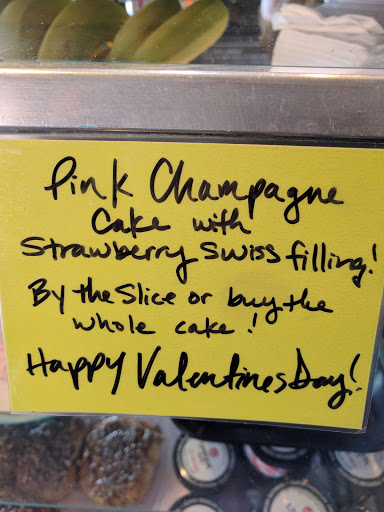 Pink Champagne
Cake with
Strawberry Swiss filling!
By the Slice or buy the
whole cake!
Happy Valentines Day!